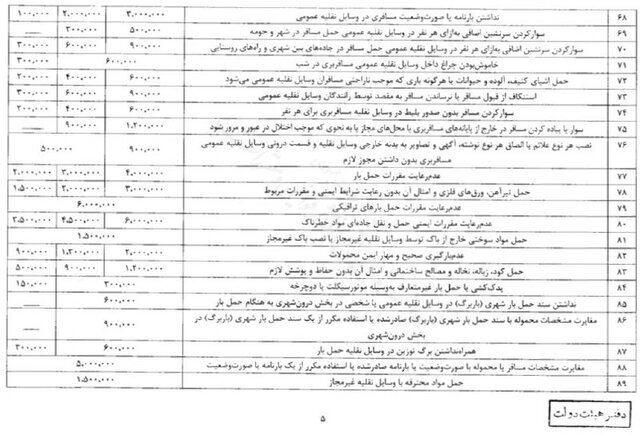 ۶۸ نداشتن بارنامه یا صورت‌وضعیت مسافری در وسایل نقلیه عمومی ۳.۰۰۰.۰۰۰ ۲.۰۰۰.۰۰۰ ۱۰۰.۰۰۰
۶۹ سوارکردن سرنشین اضافی به‌ازای هر نفر در وسایل نقلیه عمومی حمل مسافر در شهر و حومه ۵۰۰.۰۰۰ ۳۰۰.۰۰۰
۷۰ سوارکردن سرنشین اضافی به‌ازای هر نفر در وسایل نقلیه عمومی حمل مسافر در جاده‌های بین شهری و راه‌های روستایی ۹۰۰.۰۰۰ ۶۰۰.۰۰۰ ۳۰۰.۰۰۰
۷۱ خاموش‌بودن چراغ داخل وسایل نقلیه عمومی مسافربری در شب ۶۰۰.۰۰۰ ۳۰۰.۰۰۰
۷۲ حمل اشیای کثیف، آلوده و حیوانات یا هرگونه باری که موجب ناراحتی مسافران وسایل نقلیه عمومی می‌شود ۶۰۰.۰۰۰ ۴۰۰.۰۰۰ ۲۰۰.۰۰۰
۷۳ استنکاف از قبول مسافر یا نرساندن مسافر به مقصد توسط رانندگان وسایل نقلیه عمومی ۹۰۰.۰۰۰ ۶۰۰.۰۰۰ ۳۰۰.۰۰۰
۷۴ سوارکردن مسافر بدون صدور بلیط در وسایل نقلیه مسافربری برای هر نفر ۶۰۰.۰۰۰ ۴۰۰.۰۰۰ ۲۰۰.۰۰۰
۷۵ سوار یا پیاده کردن مسافر در خارج از پایانه‌های مسافربری یا محل‌های مجاز یا به نحوی که موجب اختلال در عبور و مرور شود ۱.۲۰۰.۰۰۰ ۹۰۰.۰۰۰
۷۶ نصب هر نوع علائم یا الصاق هر نوع نوشته، آگهی و تصاویر به بدنه خارجی وسایل نقلیه و قسمت درونی وسایل نقلیه عمومی ۹۰۰.۰۰۰ ۵۰۰.۰۰۰
مسافربری بدون داشتن مجوز لازم
۷۷ عدم‌رعایت مقررات حمل بار ۴.۰۰۰.۰۰۰ ۳.۰۰۰.۰۰۰ ۲.۰۰۰.۰۰۰
۷۸ حمل تیرآهن، ورق‌های فلزی و امثال آن بدون رعایت شرایط ایمنی و مقررات مربوط ۳.۰۰۰.۰۰۰ ۲.۰۰۰.۰۰۰ ۱.۵۰۰.۰۰۰
۷۹ عدم‌رعایت مقررات حمل بارهای ترافیکی ۶.۰۰۰.۰۰۰
۸۰ عدم‌رعایت مقررات ایمنی حمل و نقل جاده‌ای مواد خطرناک ۶.۰۰۰.۰۰۰ ۴.۵۰۰.۰۰۰ ۳.۵۰۰.۰۰۰
۸۱ حمل مواد سوختی خارج از باک توسط وسایل نقلیه غیرمجاز یا نصب باک غیرمجاز ۱.۵۰۰.۰۰۰
۸۲ عدم‌بارگیری صحیح و مهار ایمن محمولات ۲.۰۰۰.۰۰۰ ۱.۳۰۰.۰۰۰ ۹۰۰.۰۰۰
۸۳ حمل کود، زباله، نخاله و مصالح ساختمانی و امثال آن بدون حفاظ و پوشش لازم ۱.۲۰۰.۰۰۰ ۹۰۰.۰۰۰ ۵۰۰.۰۰۰
۸۴ یدک‌کشی یا حمل بار غیرمتعارف به‌وسیله موتورسیکلت یا دوچرخه ۳۰۰.۰۰۰ ۱۵۰.۰۰۰
۸۵ نداشتن سند حمل بار شهری (باربرگ) در وسایل نقلیه عمومی یا شخصی در بخش درون‌شهری به هنگام حمل بار ۶۰۰.۰۰۰
۸۶ مغایرت مشخصات محموله با سند حمل بار شهری (باربرگ) صادرشده یا استفاده مکرر از یک سند حمل بار شهری (باربرگ) در ۹۰۰.۰۰۰
بخش درون‌شهری
۸۷ همراه‌نداشتن برگ توزین در وسایل نقلیه حمل بار ۶۰۰.۰۰۰ ۳۰۰.۰۰۰
۸۸ مغایرت مشخصات مسافر یا محموله با صورت‌وضعیت یا بارنامه صادرشده یا استفاده مکرر از یک بارنامه یا صورت‌وضعیت ۵.۰۰۰.۰۰۰
۸۹ حمل مواد محترقه با وسایل نقلیه غیرمجاز ۱.۵۰۰.۰۰۰
۵
دفتر هیئت دولت